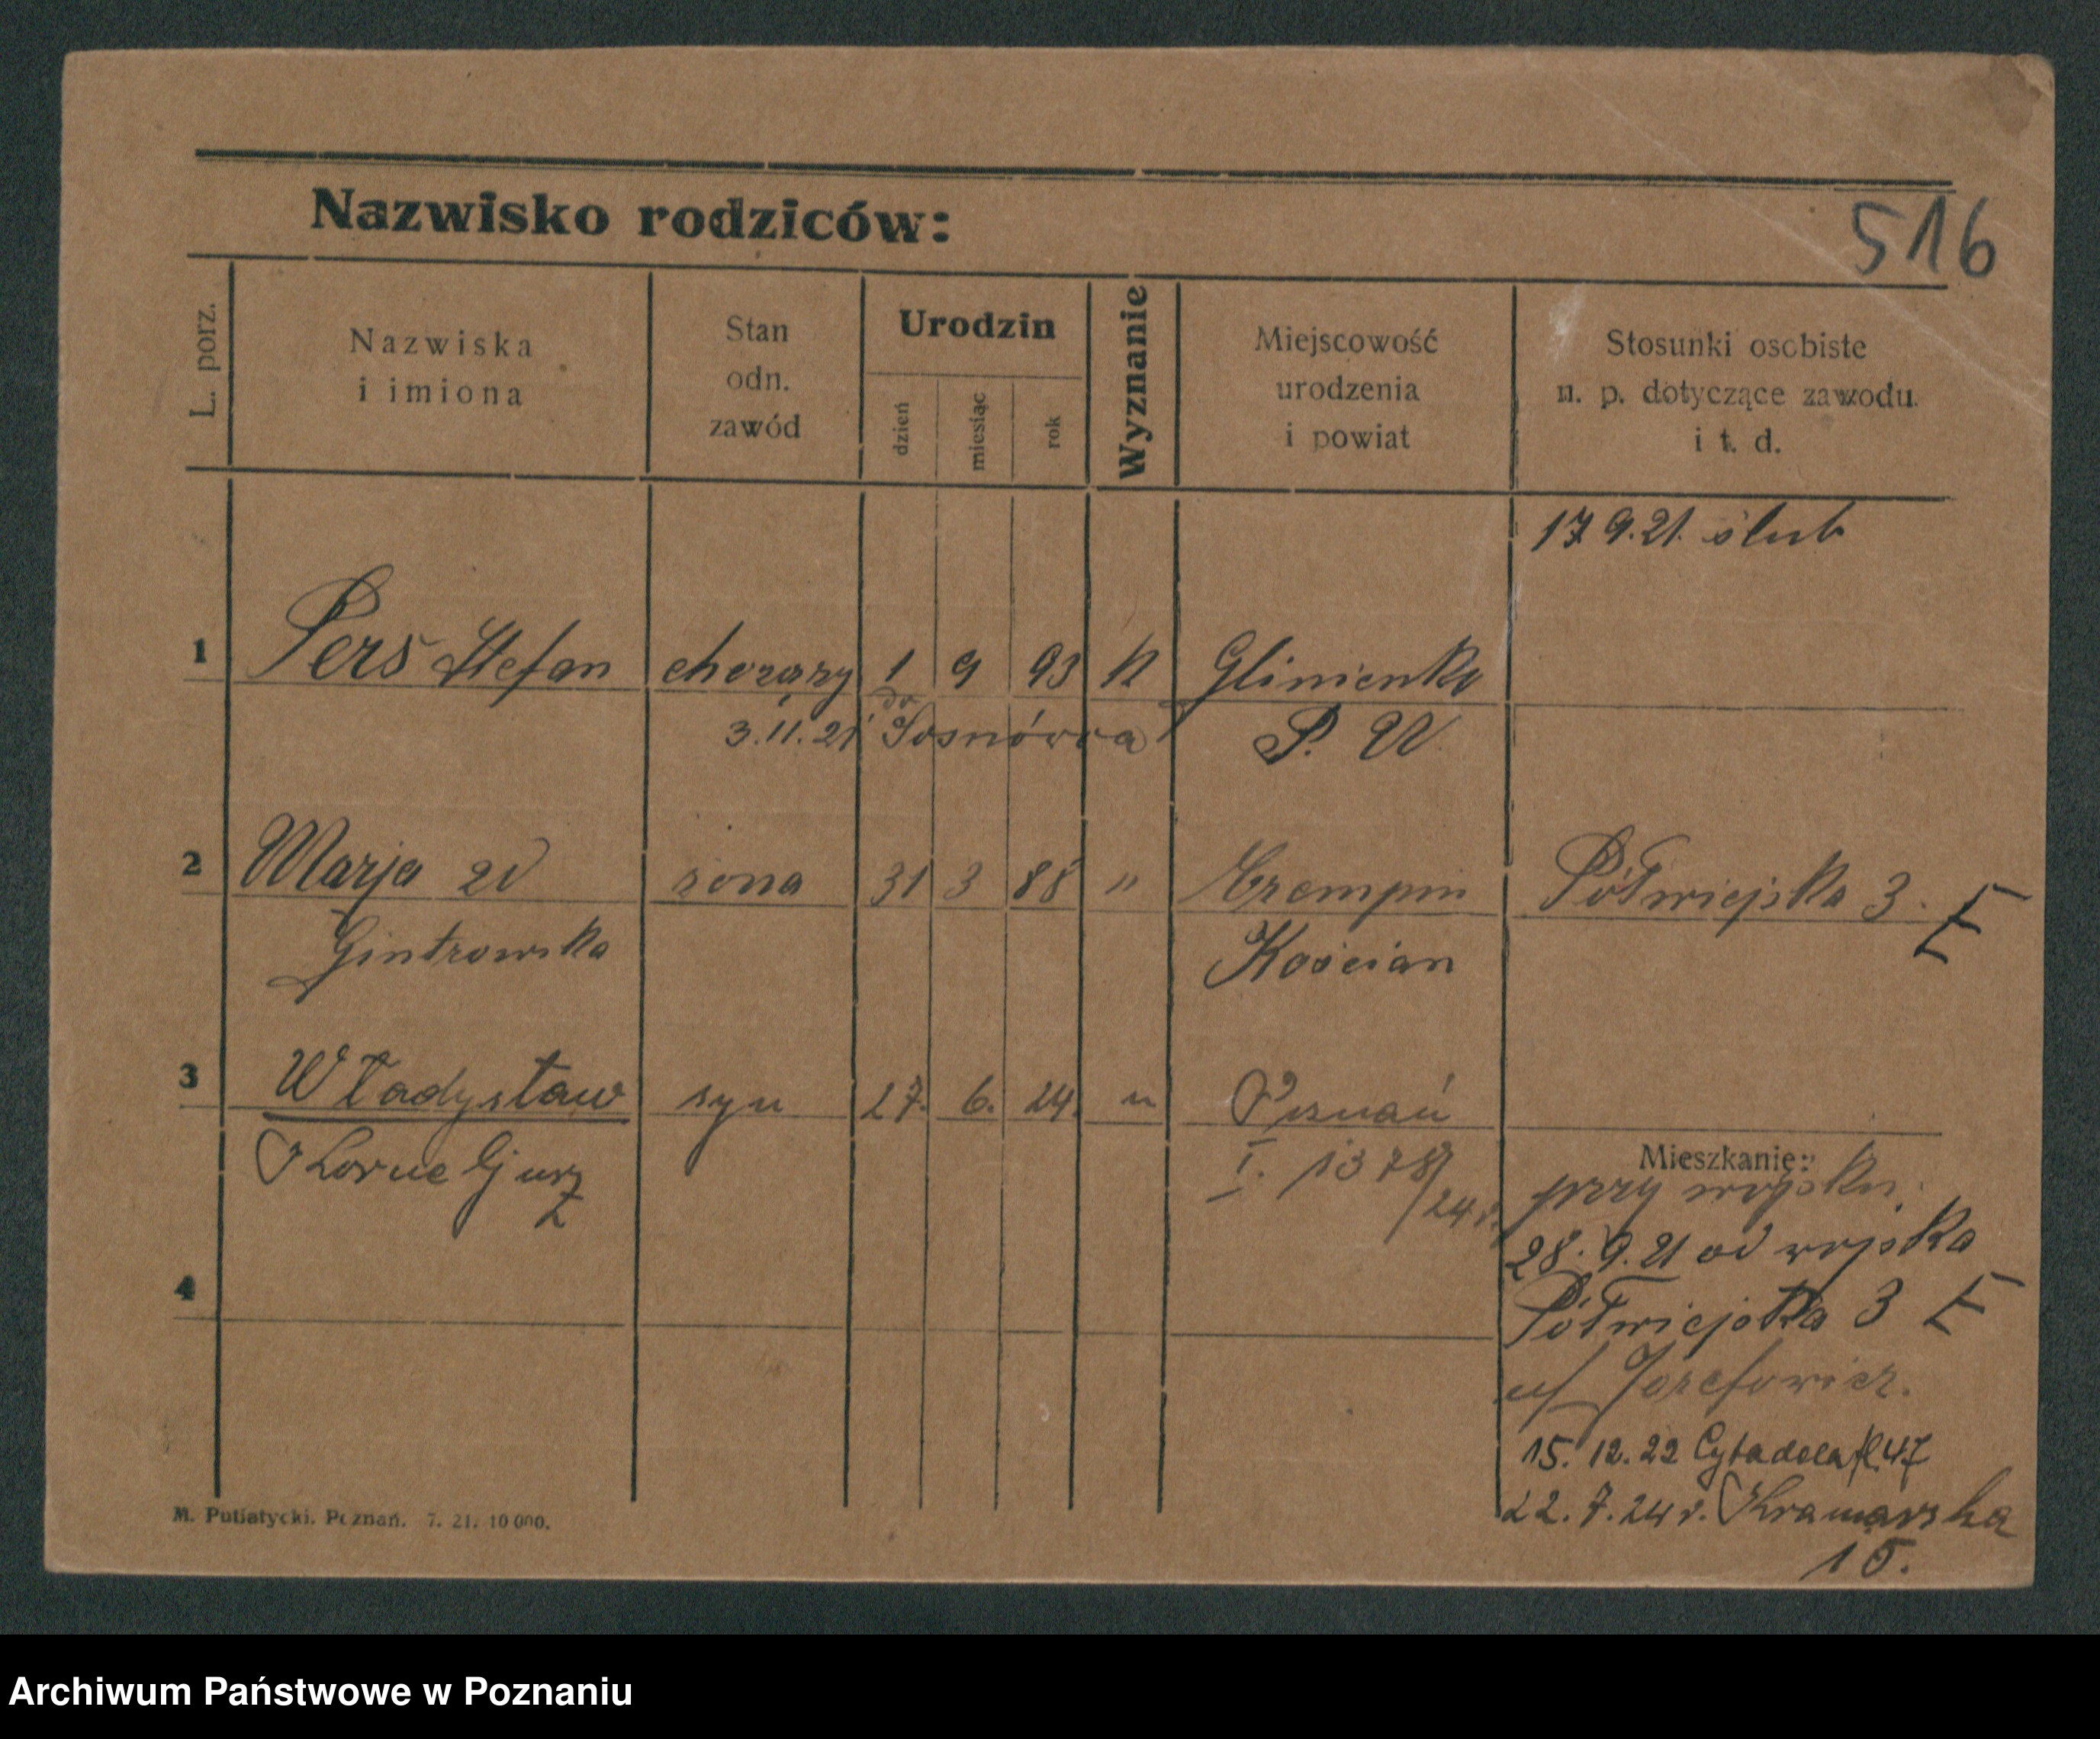 Nazwisko rodziców:
516
L. porz.
Nazwiska
i imiona
Stan
odn.
zawód
Urodzin
dzień
miesiąc
rok
Wyznanie
Miejscowość
urodzenia
i powiat
Stosunki osobiste
n. p. dotyczące zawodu
i t. d.
17.9.21. ślub
1 Pers Stefan chorąży 1 9 93 k Glinienko
3.11.21 do Sosnówca P. W
2 Marja zd żona 31 3 88 " Czempin Półwiejska 3.
Gintrowska Kościan
3 Władysław syn 27. 6. 24. " Poznań
Korneljusz I. 1378/24 r.
Mieszkanie:
przy wojsku.
28.9.21 od wojska
Półwiejska 3
Józefowicz.
15.12.22 Cytadela 47
22.7.24 r. Kramarska
15.
4
M. Putiatycki. Poznań. 7. 21. 10 000.
Archiwum Państwowe w Poznaniu